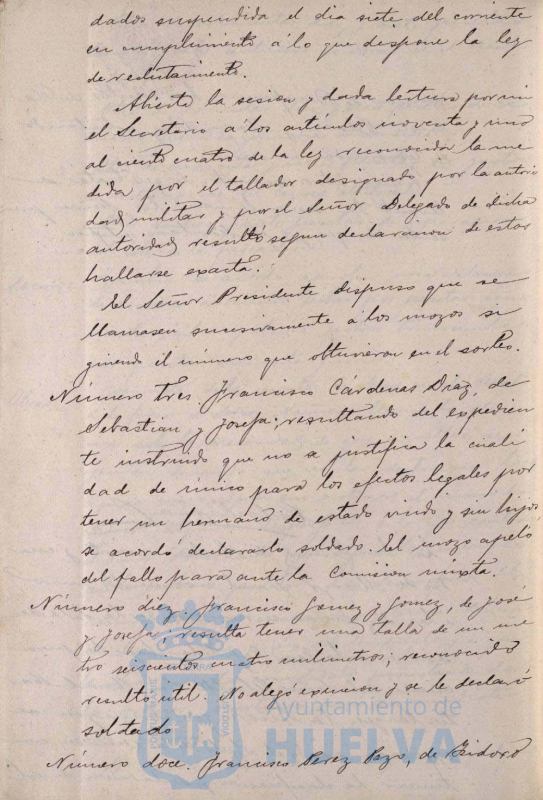 dados suspendida el dia siete del corriente
en cumplimiento á lo que dispone la ley
de reclutamiento.
Abierta la sesion y dada lectura por mi
el Secretario á los artículos noventa y uno
al ciento cuatro de la ley reconocida la me
dida por el tallador designado por la autori
dad militar y por el Señor Delegado de dicha
autoridad resultó segun declaracion de estos
hallarse exacta.
El Señor Presidente dispuso que se
llamasen sucesivamente á los mozos si
guiendo el número que obtuvieron en el sorteo.
Número tres. Francisco Cárdenas Diaz, de
Sebastian y Josefa; resultando del expedien
te instruido que no se justifica la cuali
dad de único para los efectos legales por
tener un hermano de estado viudo y sin hijos,
se acordó declararlo soldado. El mozo apeló
del fallo para ante la Comision mixta.
Número diez. Francisco Gomez y Gomez, de José
y Josefa; resulta tener una talla de un me
tro seiscientos cuatro milimetros; reconocido
resultó útil. No alegó exencion y se le declaró
soldado
Número doce. Francisco Perez Pazo, de Isidoro
Ayuntamiento de
HUELVA